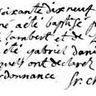 soixante dix neuf
acte baptisé p
lambert et de
été gabriel dani
qui ont declaré
ordonnance fr. ch